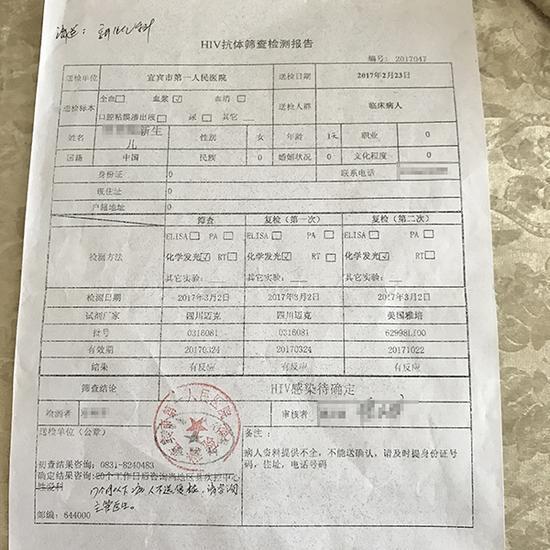 HIV抗体筛查检测报告
编号: 2017047
送检单位 宜宾市第一人民医院 送检日期 2017年2月23日
送检标本 全血□ 血浆☑ 血清□ 口腔粘膜渗出液□ 尿□ 其它 送检人群 临床病人
姓名 新生儿 性别 女 年龄 1天 职业 0
国籍 中国 民族 0 婚姻状况 0 文化程度 0
身份证 0 联系电话
现住址 0
户籍地址 0
筛查 复检(第一次) 复检(第二次)
检测方法 ELISA□ PA□ ELISA□ PA□ ELISA□ PA□
化学发光☑ RT□ 化学发光☑ RT□ 化学发光☑ RT□
其它实验: 其它实验: 其它实验:
检测日期 2017年3月2日 2017年3月2日 2017年3月2日
试剂厂家 四川迈克 四川迈克 美国雅培
批号 0316081 0316081 62998LI00
有效期 20170324 20170324 20171022
结果 有反应 有反应 有反应
筛查结论 HIV感染待确定
检测者 审核者
送检单位(公章) 备注:
病人资料提供不全,不能送确认,请及时提身份证号码,住址,电话号码
初查结果咨询: 0831-8240483
确定结果咨询:20个工作日后咨询当地区县疾控中心
性爱科
17个月以下病人不送复检,请咨询
主管医生。
邮编: 644000